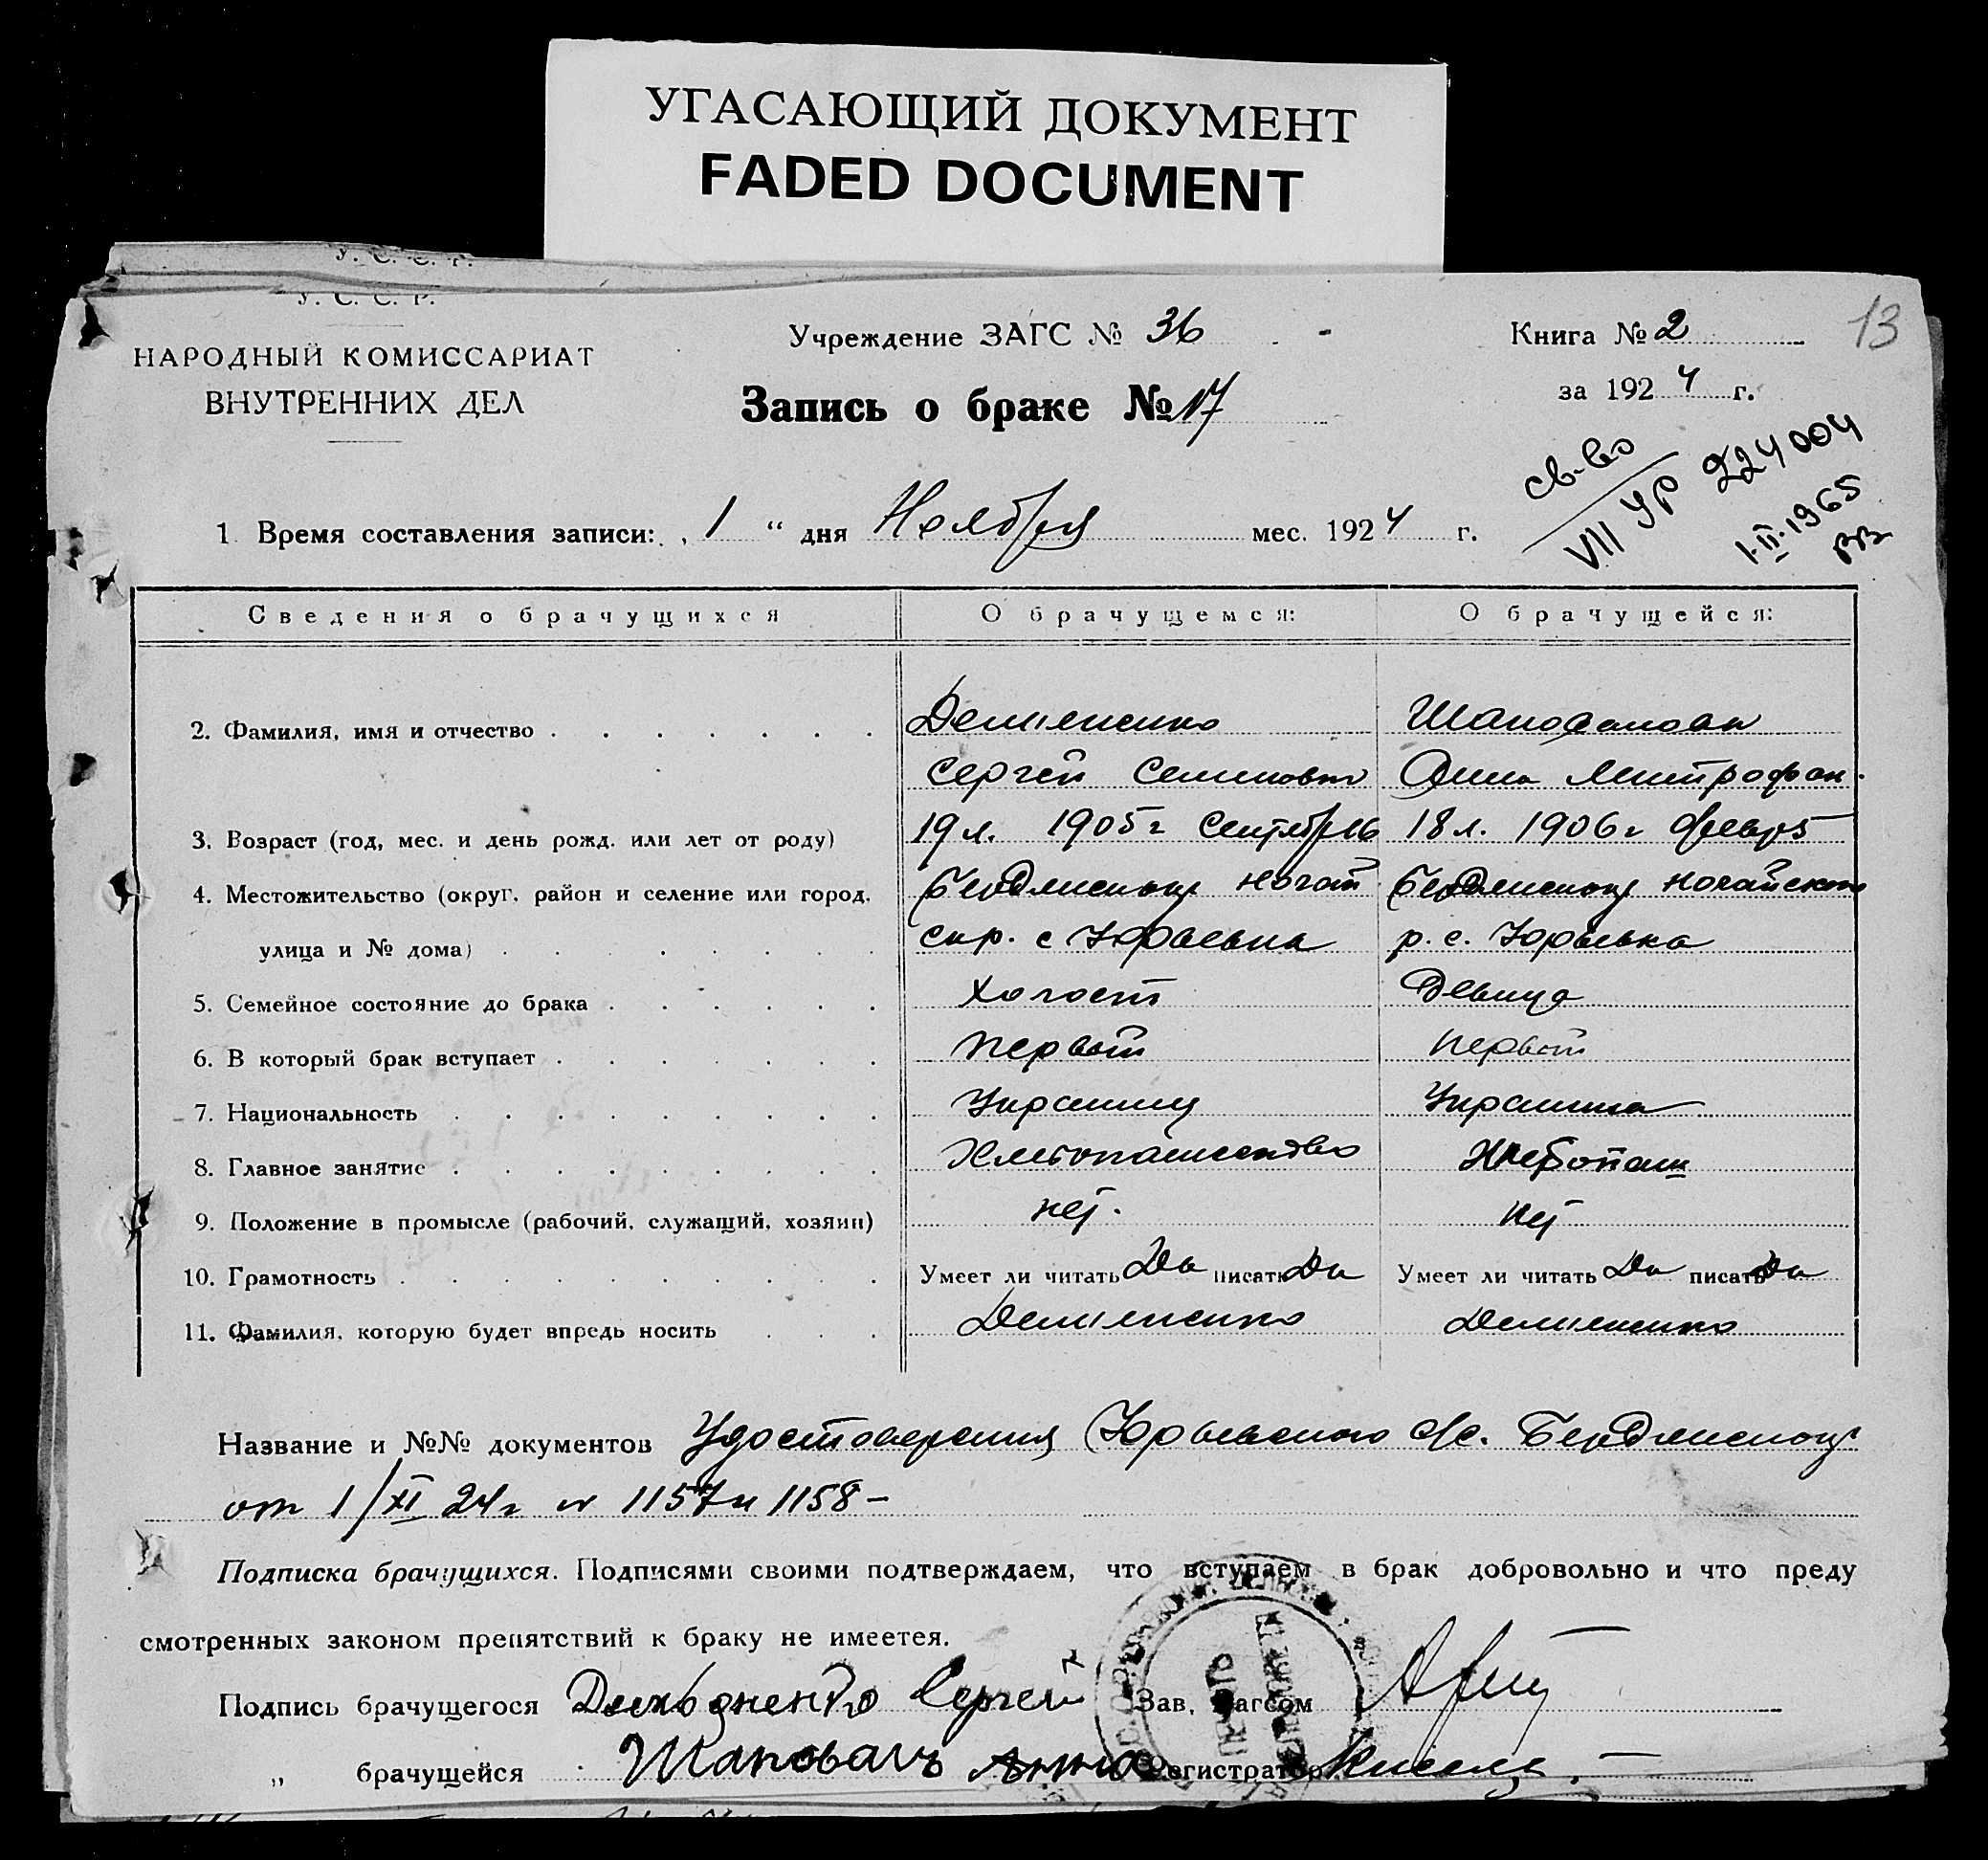 УГАСАЮЩИЙ ДОКУМЕНТ
FADED DOCUMENT
У. С. С. Р.
У. С. С. Р.
НАРОДНЫЙ КОМИССАРИАТ
ВНУТРЕННИХ ДЕЛ
Учреждение ЗАГС № 36
Запись о браке № 17
Книга № 2
13
за 1924 г.
св-во
VII УР 224004
1.II.1965
1. Время составления записи: „ 1 “ дня Ноября мес. 1924 г.
Сведения о брачущихся О брачущемся: О брачущейся:
2. Фамилия, имя и отчество
Сергей Семенович Анна Митрофан.
3. Возраст (год, мес. и день рожд. или лет от роду) 19 л. 1905 г Сентябр 16 18 л. 1906 г Февр 5
4. Местожительство (округ, район и селение или город, Бердянског Ногай Бердянског Ногайского
улица и № дома) скр. с Юрьевка р. с. Юрьевка
5. Семейное состояние до брака Холост Девица
6. В который брак вступает Первый Первый
7. Национальность Украинец Украинка
8. Главное занятие Хлебопашество Хлебопаш
9. Положение в промысле (рабочий, служащий, хозяин) нет. нет
10. Грамотность Умеет ли читать Да писать Да Умеет ли читать Да писать Да
11. Фамилия, которую будет впредь носить
Название и №№ документов Удостоверения Юрьевского с/с. Бердянског
от 1/XI 24 г № 1157 и 1158 –
Подписка брачущихся. Подписями своими подтверждаем, что вступаем в брак добровольно и что преду
смотренных законом препятствий к браку не имеетея.
Подпись брачущегося Сергей Зав. Загсом
„ брачущейся Шаповалъ Анна Регистратор